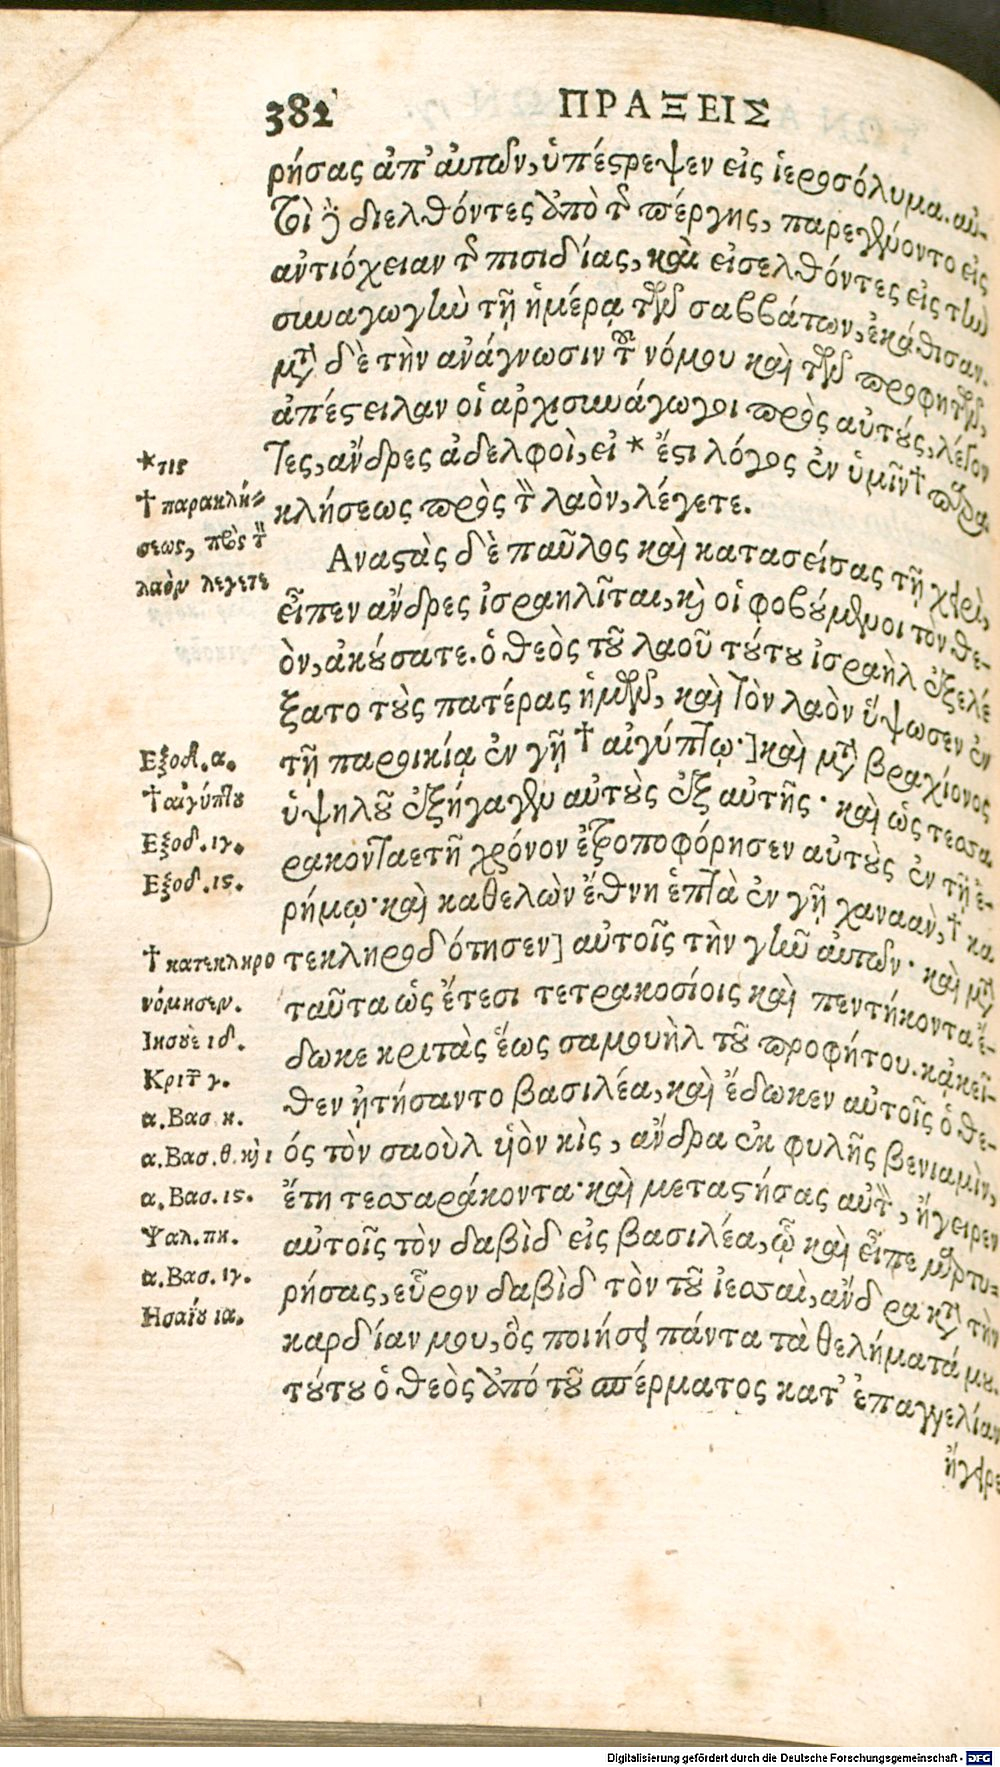 382 ΠΡΑΞΕΙΣ
ρήσας ἀπ' αὐτῶν, ὑπέςρεψεν εἰς ἱεροσόλυμα. αὐ-
τοὶ δὲ διελθόντες ἀπὸ τῆς πέργης, παρεγένοντο εἰς
αντιόχειαν τῆς πισιδίας, καὶ εἰσελθόντες εἰς τὴν
συναγωγὴν τῇ ἡμέρᾳ τῶν σαββάτων, ἐκάθισαν.
μετὰ δὲ τὴν ανάγνωσιν τοῦ νόμου καὶ τῶν προφητῶν,
ἀπέςειλαν οἱ αρχισυνάγωγοι πρὸς αὐτοὺς, λέγον
τες, ανδρες ἀδελφοὶ, εἰ * ἔςι λόγος ἐν ὑμῖν † παρα
κλήσεως πρὸς τὸν λαὸν, λέγετε.
Αναςὰς δὲ παῦλος καὶ κατασείσας τῇ χειρὶ,
εἶπεν ανδρες ἰσραηλῖται, καὶ οἱ φοβούμενοι τὸν θε-
ὸν, ακούσατε. ὁ θεὸς τοῦ λαοῦ τούτου ἰσραὴλ ἐξελέ
ξατο τοὺς πατέρας ἡμῶν, καὶ τὸν λαὸν ὕψωσεν ἐν
τῇ παροικίᾳ ἐν γῇ † αἰγύπτῳ·] καὶ μετὰ βραχίονος
ὑψηλοῦ ἐξήγαγεν αὐτοὺς ἐξ αὐτῆς· καὶ ὡς τεσσα
ρακονταετῆ χρόνον ἐτροποφόρησεν αὐτοὺς ἐν τῇ ἐ-
ρήμῳ· καὶ καθελὼν ἔθνη ἑπτὰ ἐν γῇ χαναὰν, † κα
τεκληροδότησεν] αὐτοῖς τὴν γῆν αὐτῶν· καὶ μετὰ
ταῦτα ὡς ἔτεσι τετρακοσίοις καὶ πεντήκοντα ἔ-
δωκε κριτὰς ἕως σαμουὴλ τοῦ προφήτου. κᾀκεῖ-
θεν ᾐτήσαντο βασιλέα, καὶ ἔδωκεν αὐτοῖς ὁ θε-
ός τὸν σαοὺλ υἱὸν κὶς, ανδρα ἐκ φυλῆς βενιαμὶν,
ἔτη τεσσαράκοντα· καὶ μεταςήσας αὐτὸν, ἤγειρεν
αὐτοῖς τὸν δαβὶδ εἰς βασιλέα, ᾧ καὶ εἶπε μαρτυ-
ρήσας, εὗρον δαβὶδ τὸν τοῦ ἰεσσαὶ, ανδρα κατὰ τὴν
καρδίαν μου, ὃς ποιήσει πάντα τὰ θελήματά μου.
τούτου ὁ θεὸς ἀπό τοῦ σπέρματος κατ' ἐπαγγελίαν
ἤγειρε
*τις
† παρακλή-
σεως, πρὸς τὸν
λαὸν λεγετε
Εξοδ. α.
† αἰγύπτου
Εξοδ. ιγ.
Εξοδ. ις.
† κατεκληρο
νόμησεν.
Ιησοὺε ιδ.
Κριτ γ.
α. Βασ κ.
α. Βασ. θ. καὶ ι
α. Βασ. ις.
Ψαλ. πη.
α. Βασ. ιγ.
Ησαΐου ια.
Digitalisierung gefördert durch die Deutsche Forschungsgemeinschaft - DFG